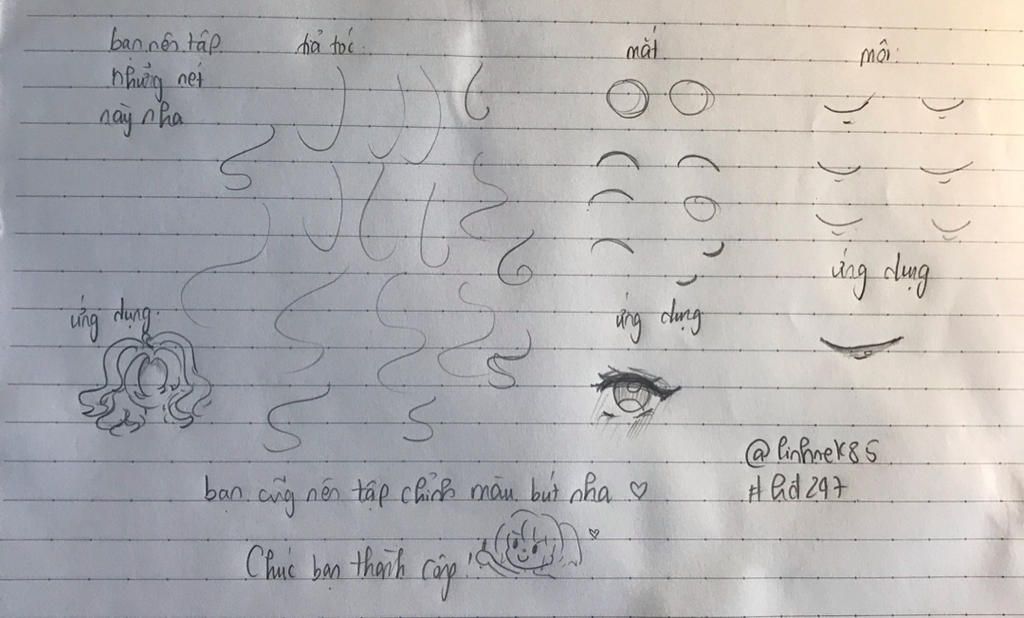 bạn nên tập
những nét
này nha
tả tóc:
mắt
môi:
ứng dụng:
ứng dụng
ứng dụng
@linhnek85
#hd247
bạn cũng nên tập chỉnh màu bút nha ♡
Chúc bạn thành công!